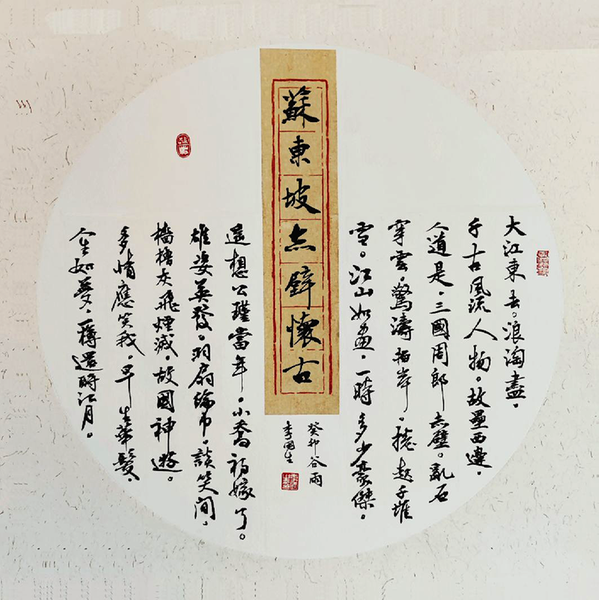 蘇東坡赤壁懷古
大江東去。浪淘盡、
千古風流人物。故壘西邊、
人道是、三國周郎赤壁。亂石
穿雲。驚濤拍岸。捲起千堆
雪。江山如畫、一時多少豪傑。
遥想公瑾當年、小喬初嫁了。
雄姿英發、羽扇綸巾、談笑間、
檣櫓灰飛煙滅、故國神遊。
多情應笑我、早生華髮、
人生如夢、樽還酹江月。
癸卯谷雨
李國生